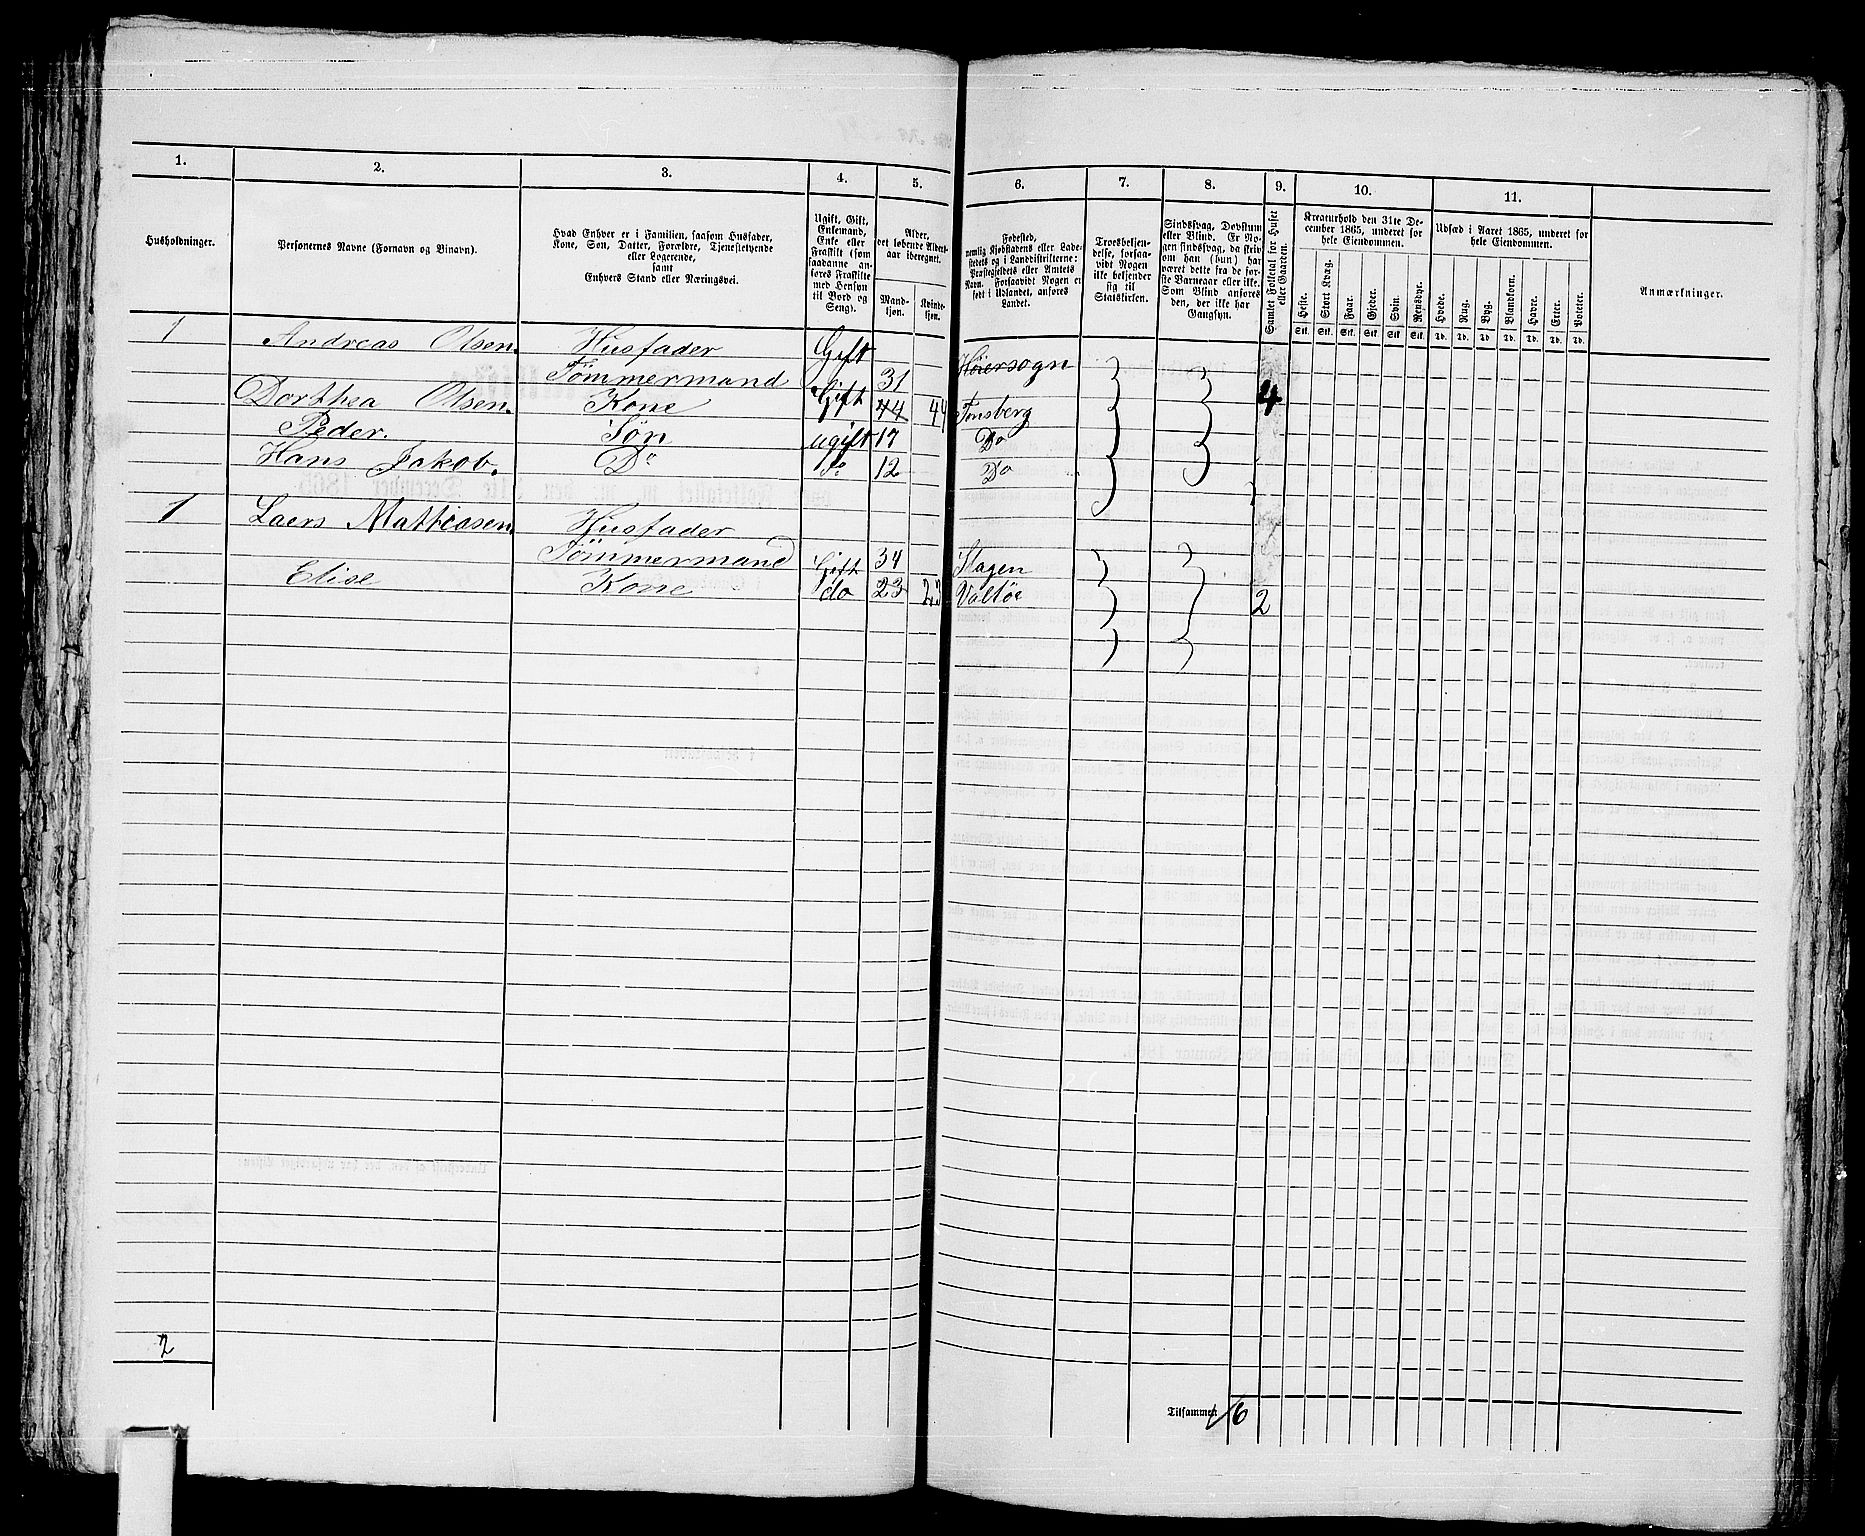 1. 2. 3. 4. 5. 6. 7. 8. 9. 10. 11.
Husholdninger.
Personernes Navne (Fornavn og Binavn).
Hvad Enhver er i Familien, saasom Husfader,
Kone, Søn, Datter, Forældre, Tjenestetyende
eller Logerende,
samt
Enhvers Stand eller Næringsvei.
Ugift, Gift,
Enkemand,
Enke eller
Fraskilt (som
saadanne an-
føres Fraskilte
med Hensyn
til Bord og
Seng).
Alder,
det løbende Alders-
aar iberegnet.
Mand-
kjøn.
Kvinde-
kjøn.
Fødested,
nemlig Kjøbstadens eller Lade-
stedets og i Landdistrikterne:
Præstegjeldets eller Amtets
Navn. Forsaavidt Nogen er
født i Udlandet, anføres
Landet.
Troesbekjen-
delse, forsaa-
vidt Nogen
ikke bekjender
sig til
Statskirken.
Sindssvag, Døvstum
eller Blind. Er No-
gen sindssvag, da skriv
om han (hun) har
været dette fra de før-
ste Barneaar eller ikke.
Som Blind anføres
den, der ikke har
Gangsyn.
Samlet Folketal for Huset
eller Gaarden.
Kreaturhold den 31te De-
cember 1865, anført for
hele Eiendommen.
Heste. Stort Kvæg. Faar. Gjeder. Svin. Rensdyr.
Stk. Stk. Stk. Stk. Stk. Stk.
Udsæd i Aaret 1865, anført for
hele Eiendommen.
Hvede. Rug. Byg. Blandkorn. Havre. Erter. Poteter.
Td. Td. Td. Td. Td. Td. Td.
Anmærkninger.
1 Andreas Olsen. Husfader Gift Høiersogn
Tømmermand 31
Dorthea Olsen. Kone Gift 44 44 Tønsberg 4
Peder. Søn ugift 17 Do
Hans Jakob. Do Do 12 Do
1 Laers Mathiasen. Husfader
Tømmermand Gift 34 Slagen
Elise Kone do 23 23 Valløe 2
2
Tilsammen 6